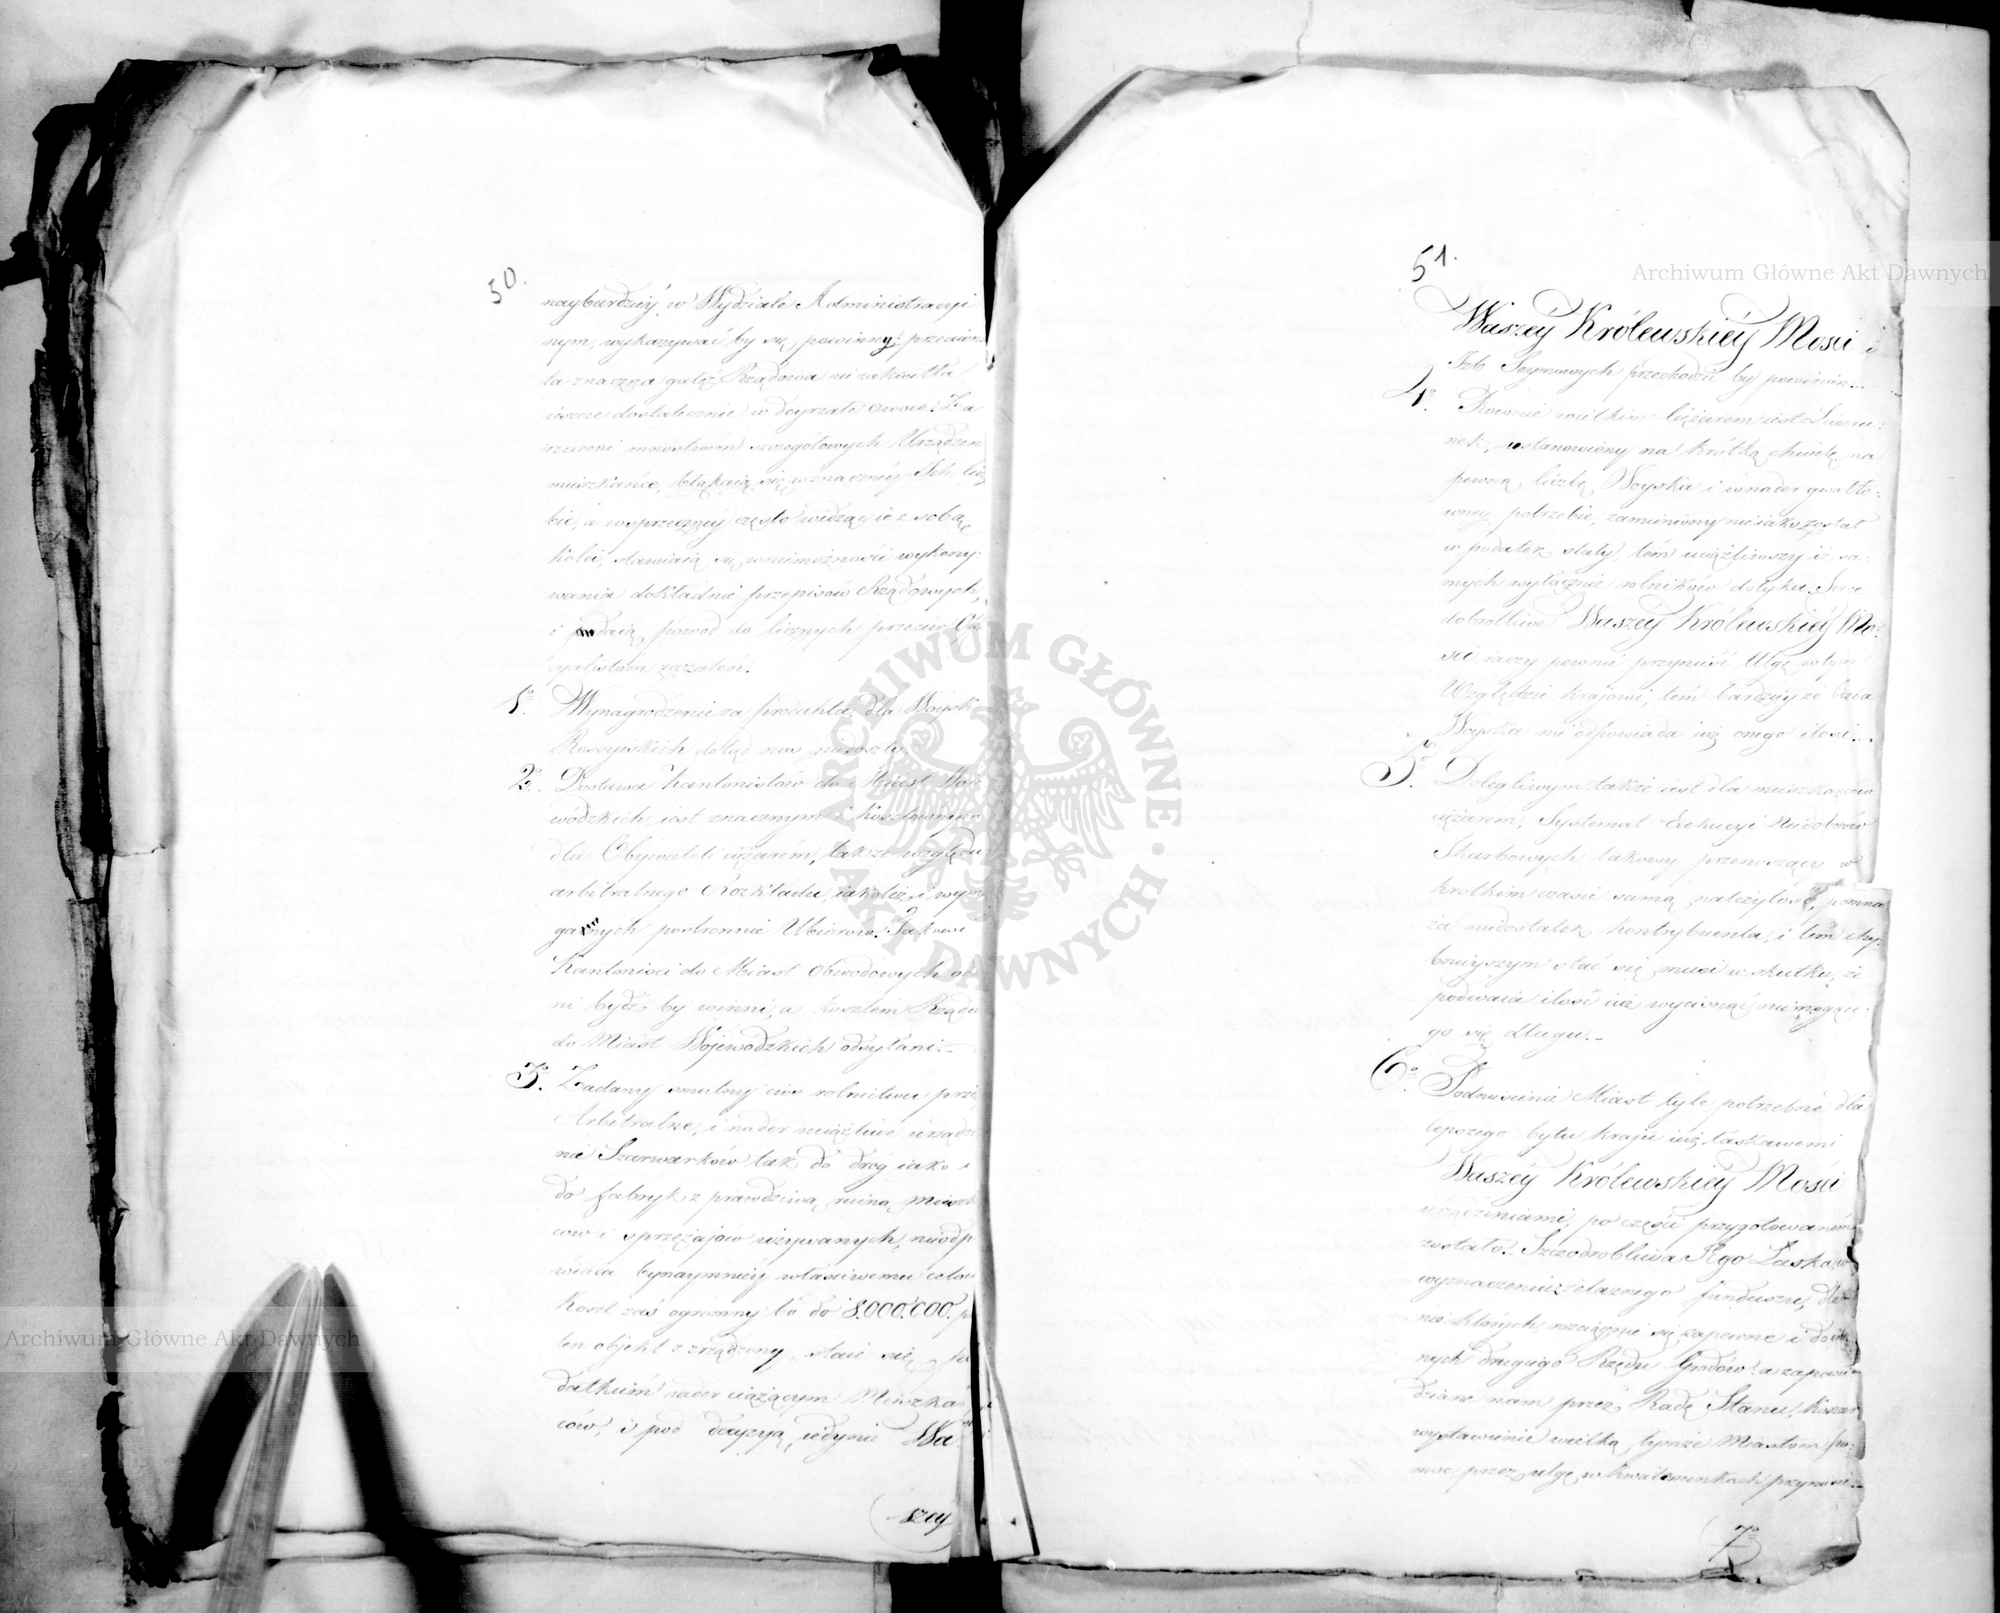 50.
naybardziéy w Wydziale Administracyi
nym, wykazywać by się powinny: przeciwn
ta znaczna gałęź Rządowa nie zakwitła
ieszcze dostatecznie w doyrzałe owoce. Za
rzuceni mnóstwem szczegółowych Urządzeń
mieszkańce, błąkaią się w znacznéy Ich licz
bie, a w sprzecznéy często widząc ie z sobą
kolei, stawiaią się w niemożności wykony:
wania dokładnie przepisów Rządowych,
i podaią powód do licznych przeciw Ofi
cyalistom zażaleń.
1o. Wynagrodzenie za produkta dla Woysk
Rossyiskich dotąd nas niedoszły.
2o. Dostawa Kantonistów do Miast Woie
wódzkich, iest znacznym i kosztownym
dla Obywateli ciężarem, także względu
arbitralnego Rozkładu, iakoteż i wyma
ganych postronnie Ubiorów. Takowi
Kantoniści do Miast Obwodowych
ni bydź by winni, a kosztem Rządu
do Miast Wojewódzkich odsyłani._
3o. Zadany smutny cios rolnictwu przez
Arbitralne, i nader uciążliwe urządze
nie Szarwarków tak do dróg iako i
do fabryk z prawdziwą ruiną mieszk
ców i sprzężajów używanych, nieodp
wiada bynaymniéy właściwemu celow
koszt zaś ogromny bo do 8.000.000. p
ten objekt zrządzony, stać się po
datkiem nader ciążącym Mieszkań
ców, i pod decyzyą iedynie Wa
szey
51.
Waszéy Królewskiéy Mości i
Izb Seymowych przechodzić by powinien._
4o. Równie wielkim ciężarem iest Liweru:
nek, ustanowiony na krótką chwilę na
pewną liczbę Woyska i w nader gwałto:
wney potrzebie, zamieniony nieiako został
w podatek stały, tém uciążliwszy iż sa:
mych wyłącznie rolników dotyka. Serce
dobrotliwe Waszéy Królewskiéy Mo:
ści raczy pewnie przynieść Ulgę w tym
Względzie kraiowi, tém bardziéy że liczba
Woyska nie odpowiada iuż onego ilości._
5o. Dolegliwym także iest dla mieszkańców
ciężarem, Systemat Exekucyi Niedoborów
Skarbowych takowy przenosząc w
krótkim czasie samą należytość, pomna
ża niedostatek kontrybuenta, i tém chy:
bnieyszym stać się musi w skutku, że
podwaia ilość iuż wycisnąć niemogące:
go się długu._
6o. Podniesienie Miast tyle potrzebne dla
lepszego bytu kraju iuż łaskawemi
Waszéy Królewskiéy Mości
urządzeniami, po części przygotowaném
zostało. Szczodrobliwa Jego Łaska, w
wyznaczeniu żelaznego funduszu, dla
na których, rozciągnie się zapewne i do in
nych drugiego Rzędu Grodów: a zapowie
dziane nam przez Radę Stanu, koszar
wystawienie wielką tymże Miastom po:
moc przez ulgę w kwaterunkach przyniesie._
7o
Archiwum Główne Akt Dawnych
Archiwum Główne Akt Dawnych
ARCHIWUM GŁÓWNE AKT DAWNYCH